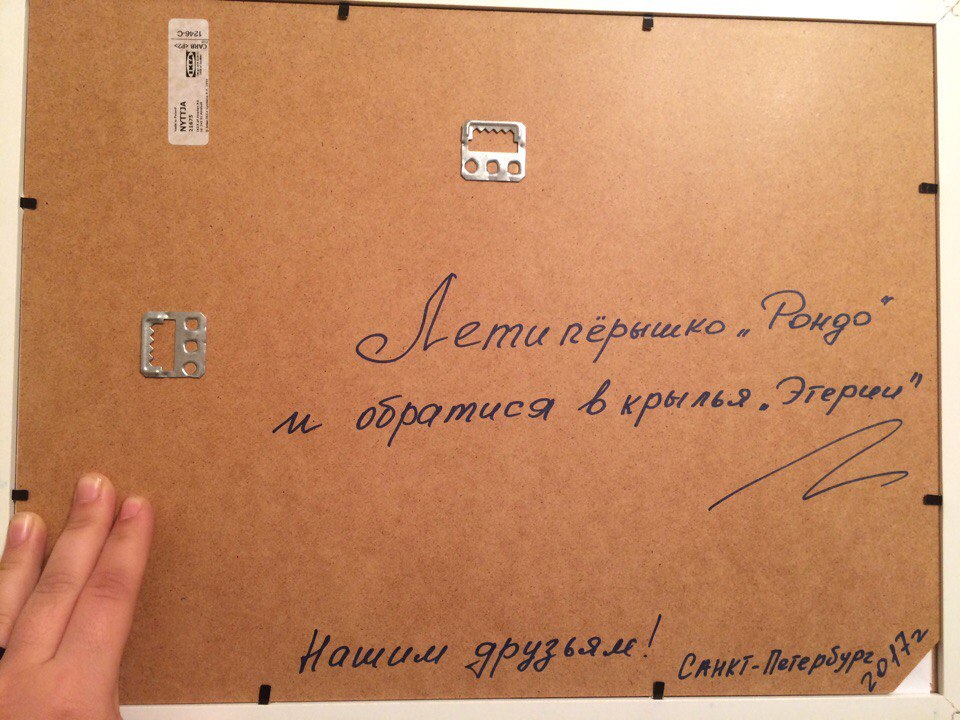 1246-C
CARB <P2>
IKEA
NYTTJA
21675
Лети пёрышко „Рондо"
и обратися в крылья „Этерии"
Нашим друзьям!
САНКТ-Петербург 2017г